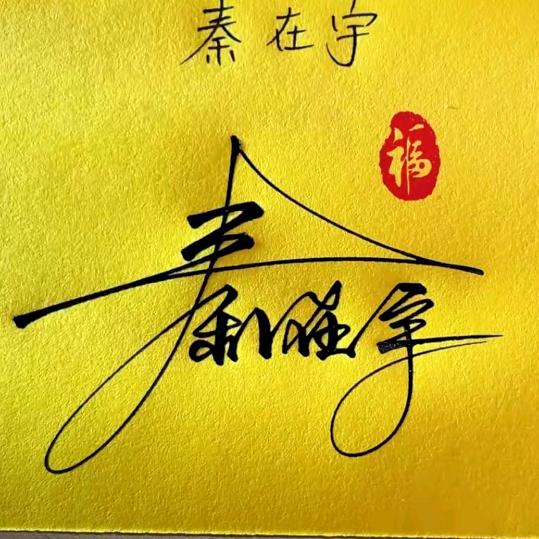 秦在宇
福
秦在宇